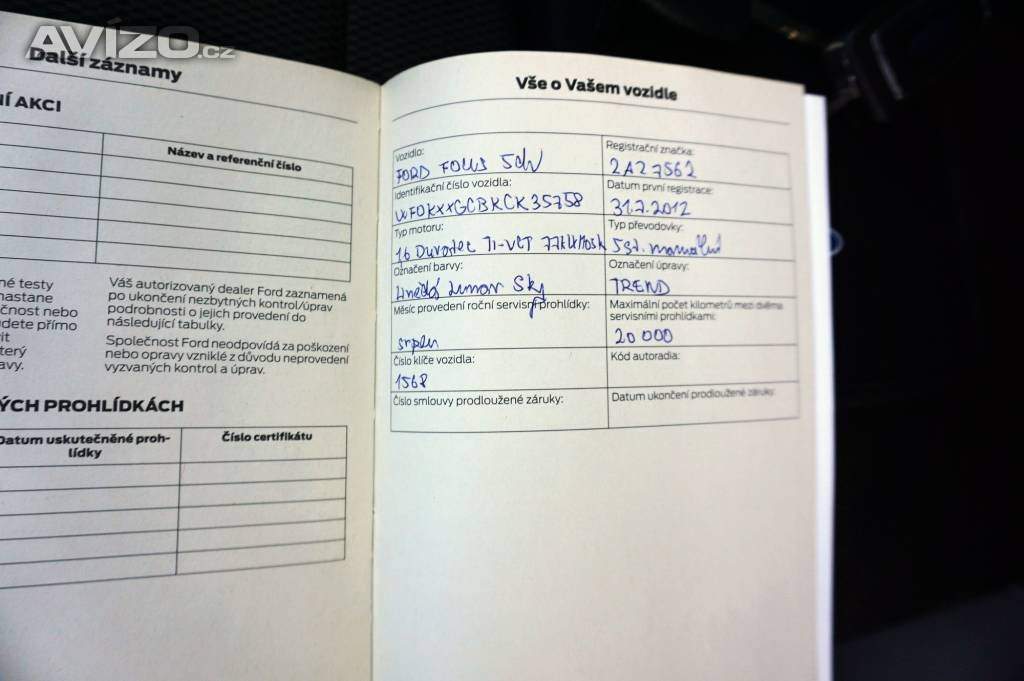 AVÍZO.cz
Další záznamy
NÍ AKCI
Název a referenční číslo
né testy
nastane
čnost nebo
udete přímo
vit
terý
avy.
Váš autorizovaný dealer Ford zaznamená
po ukončení nezbytných kontrol/úprav
podrobnosti o jejich provedení do
následující tabulky.
Společnost Ford neodpovídá za poškození
nebo opravy vzniklé z důvodu neprovedení
vyzvaných kontrol a úprav.
ÝCH PROHLÍDKÁCH
Datum uskutečněné proh-
lídky
Číslo certifikátu
Vše o Vašem vozidle
Vozidlo:
FORD FOCUS 5dv
Registrační značka:
2A27562
Identifikační číslo vozidla:
WF0KXXGCBKCK35758
Datum první registrace:
31.7.2012
Typ motoru:
1.6 Duratec Ti-VCT 77kW
Typ převodovky:
5st. manuální
Označení barvy:
Hnědá Lunar Sky
Označení úpravy:
TREND
Měsíc provedení roční servisní prohlídky:
srpen
Maximální počet kilometrů mezi dvěma
servisními prohlídkami:
20 000
Číslo klíče vozidla:
1568
Kód autoradia:
Číslo smlouvy prodloužené záruky:
Datum ukončení prodloužené záruky: